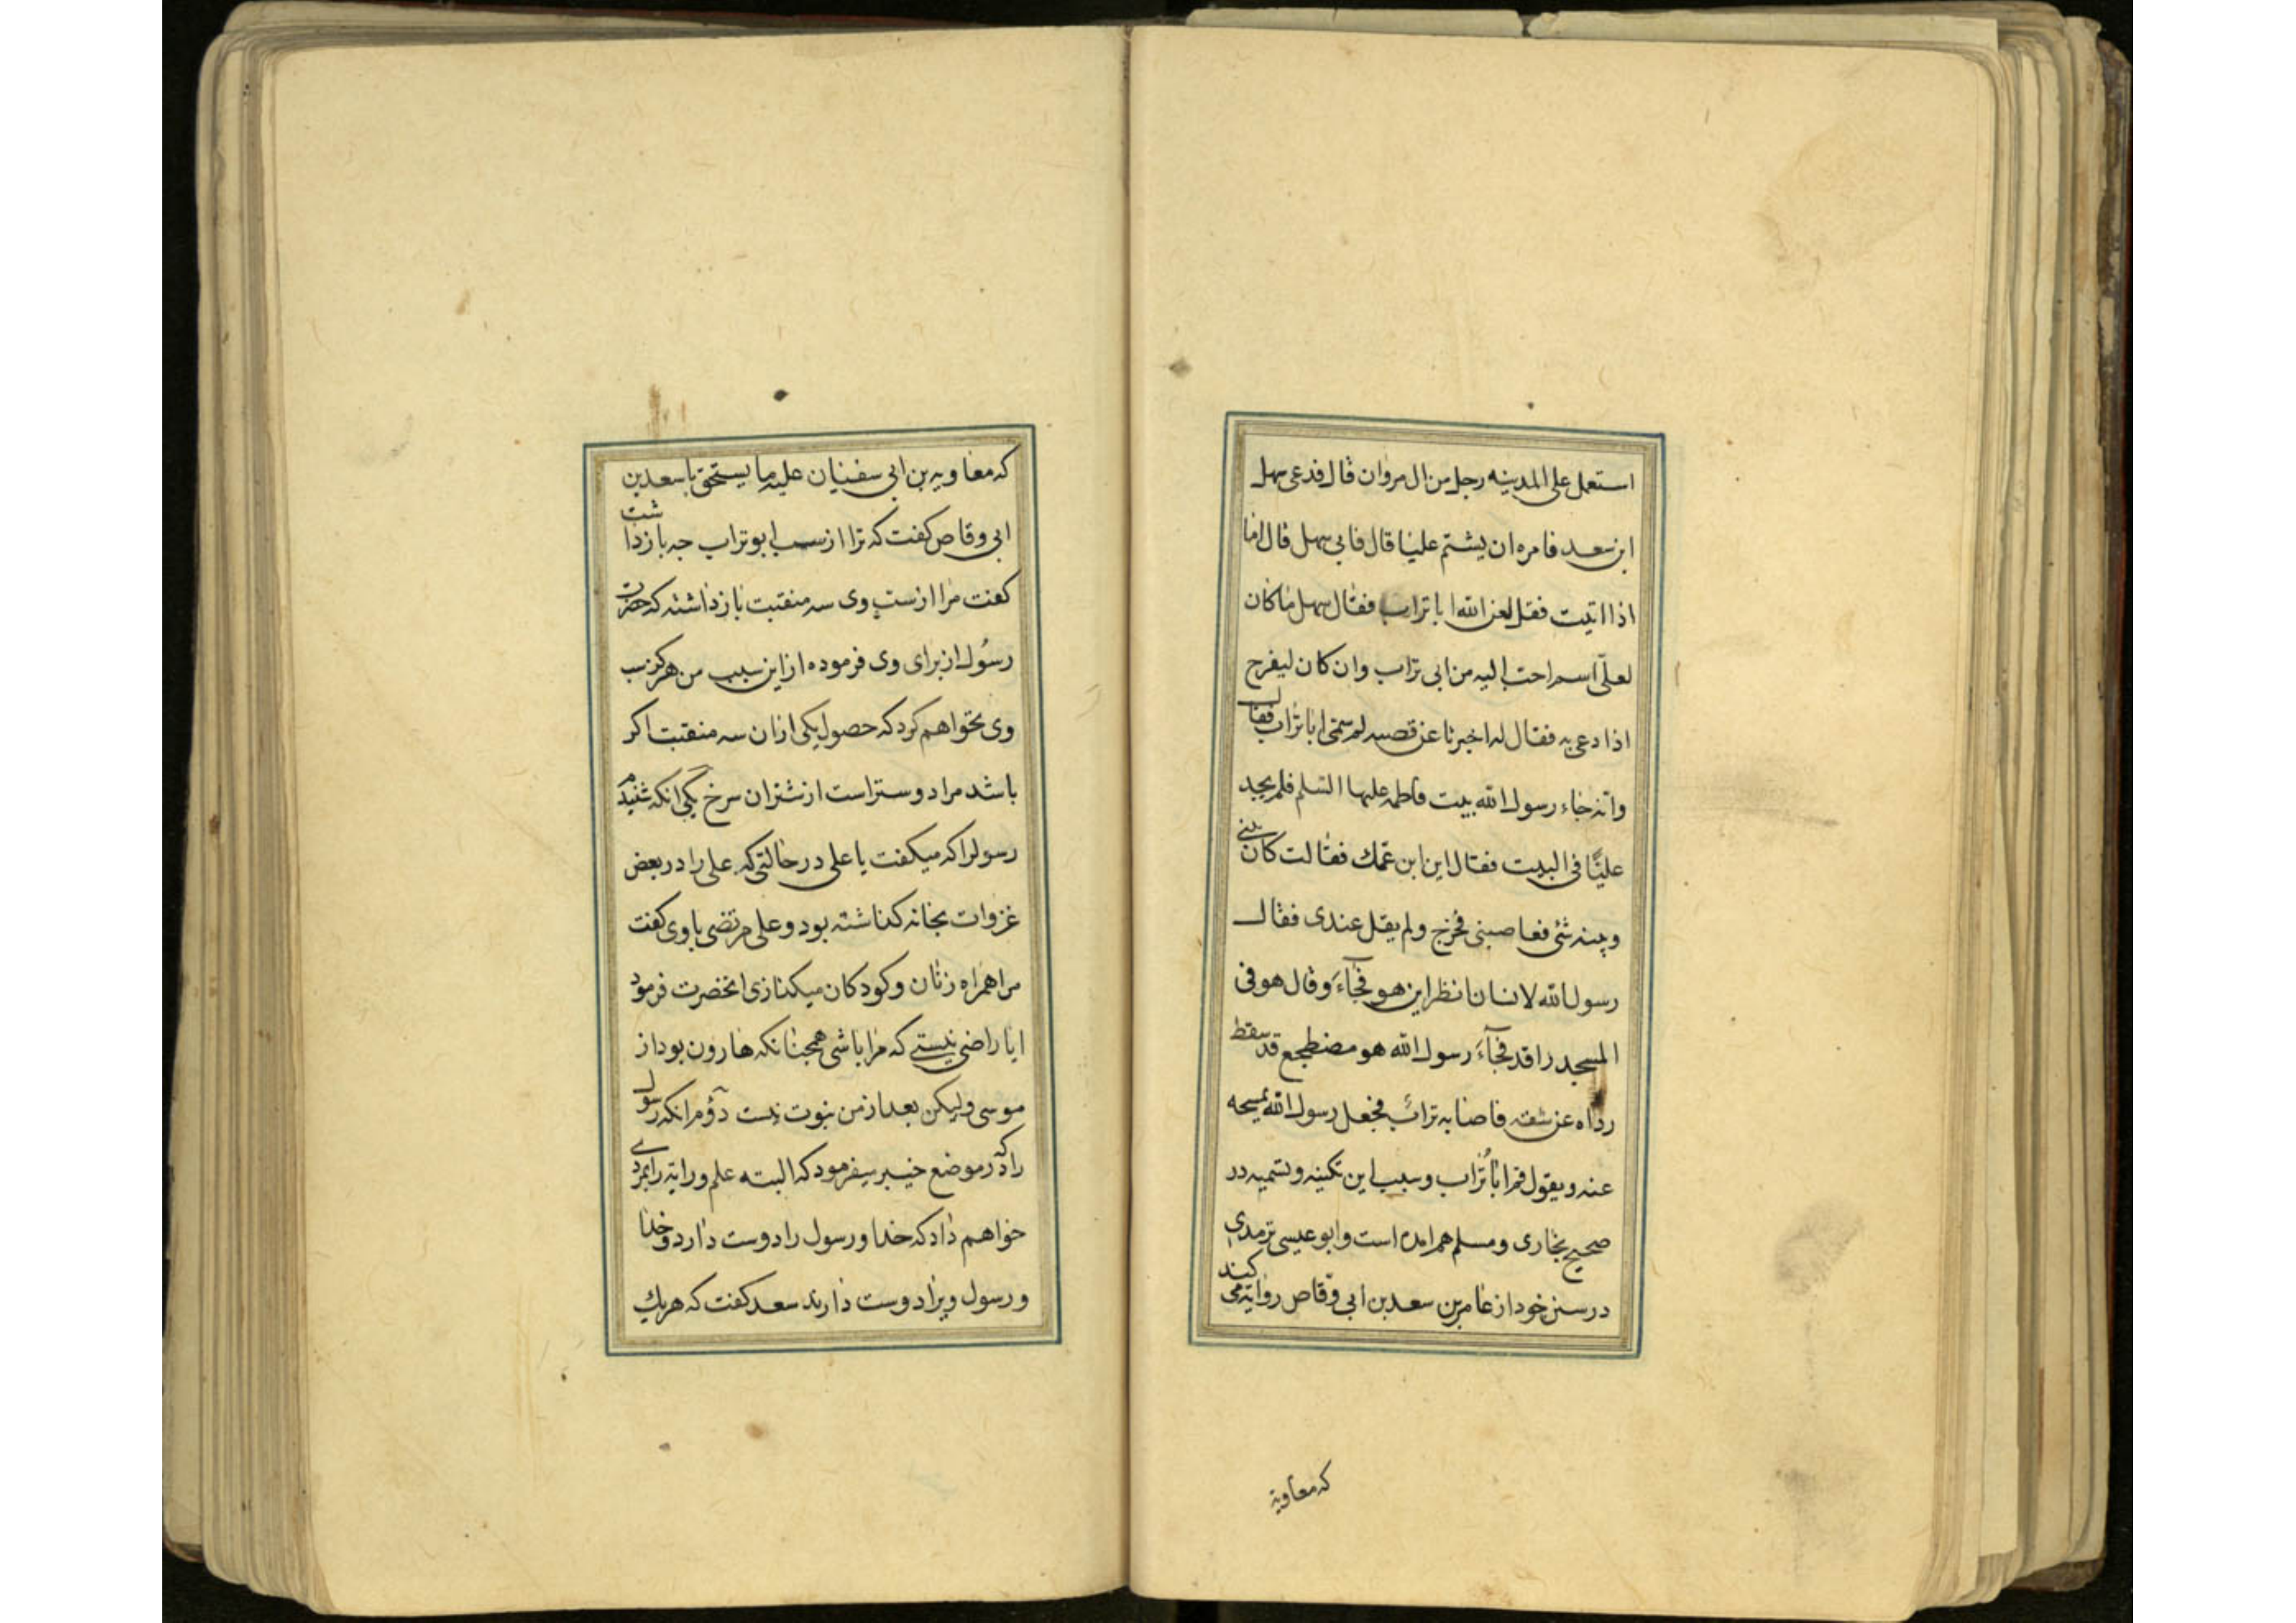 استعمل علی المدینه رجل من ال مروان قال فدعی سهل
ابن سعد فامره ان یشتم علیا قال فابی سهل قال اما
اذا اتیت فقل لعن الله ابا تراب فقال سهل ما کان
لعلی اسم احب الیه من ابی تراب وان کان لیفرح
اذا دعی به فقال له اخبرنا عن قصه لم سمی ابا تراب فقال
وانه جاء رسول الله بیت فاطمه علیها السلم فلم یجد
علیًّا فی البیت فقال این ابن عمّك فقالت کان بینی
وبینه شئ فغاصبنی فخرج ولم یقل عندی فقال
رسول الله لانسان انظر این هو فجآءَ وقال هو فی
المسجد راقد فجآءَ رسول الله هو مضطجع قد سقط
رداه عن شقه فاصابه تراب فجعل رسول الله یمسحه
عنه ویقول قم ابا تُراب وسبب این تکنیه وتسمیه در
صحیح بخاری ومسلم هم امده است وابو عیسی ترمدی
در سنن خود از عامر بن سعد بن ابی وقاص روایة می کنید
که معاویة
که معاویه بن ابی سفنیان علیه ما یستحق با سعد بن
ابی وقاص کفت که ترا از سب ابو تراب جه باز داشت
کفت مرا از سب وی سه منقبت باز داشته که حضرت
رسُول از برای وی فرموده از این سبب من هرکز سب
وی نخواهم کرد که حصول یکی از ان سه منقبت اکر
باشد مرا دوستر است از شتران سرخ یکی انکه شنیدم
رسول را که میکفت با علی در حالتی که علی را در بعض
غزوات بخانه کذاشته بود و علی مرتضی با وی کفت
مرا همراه زنان و کودکان میکذاری انحضرت فرمود
ایا راضی نیستے که مرا باشی همجنانکه هارون بود از
موسی ولیکن بعد از من نبوت نیست دوّم انکه رسول
را که در موضع خیبر میفرمود که البته علم و رایة را بمردے
خواهم داد که خدا و رسول را دوست دارد و خدا
و رسول ویرا دوست دارند سعد کفت که هریك